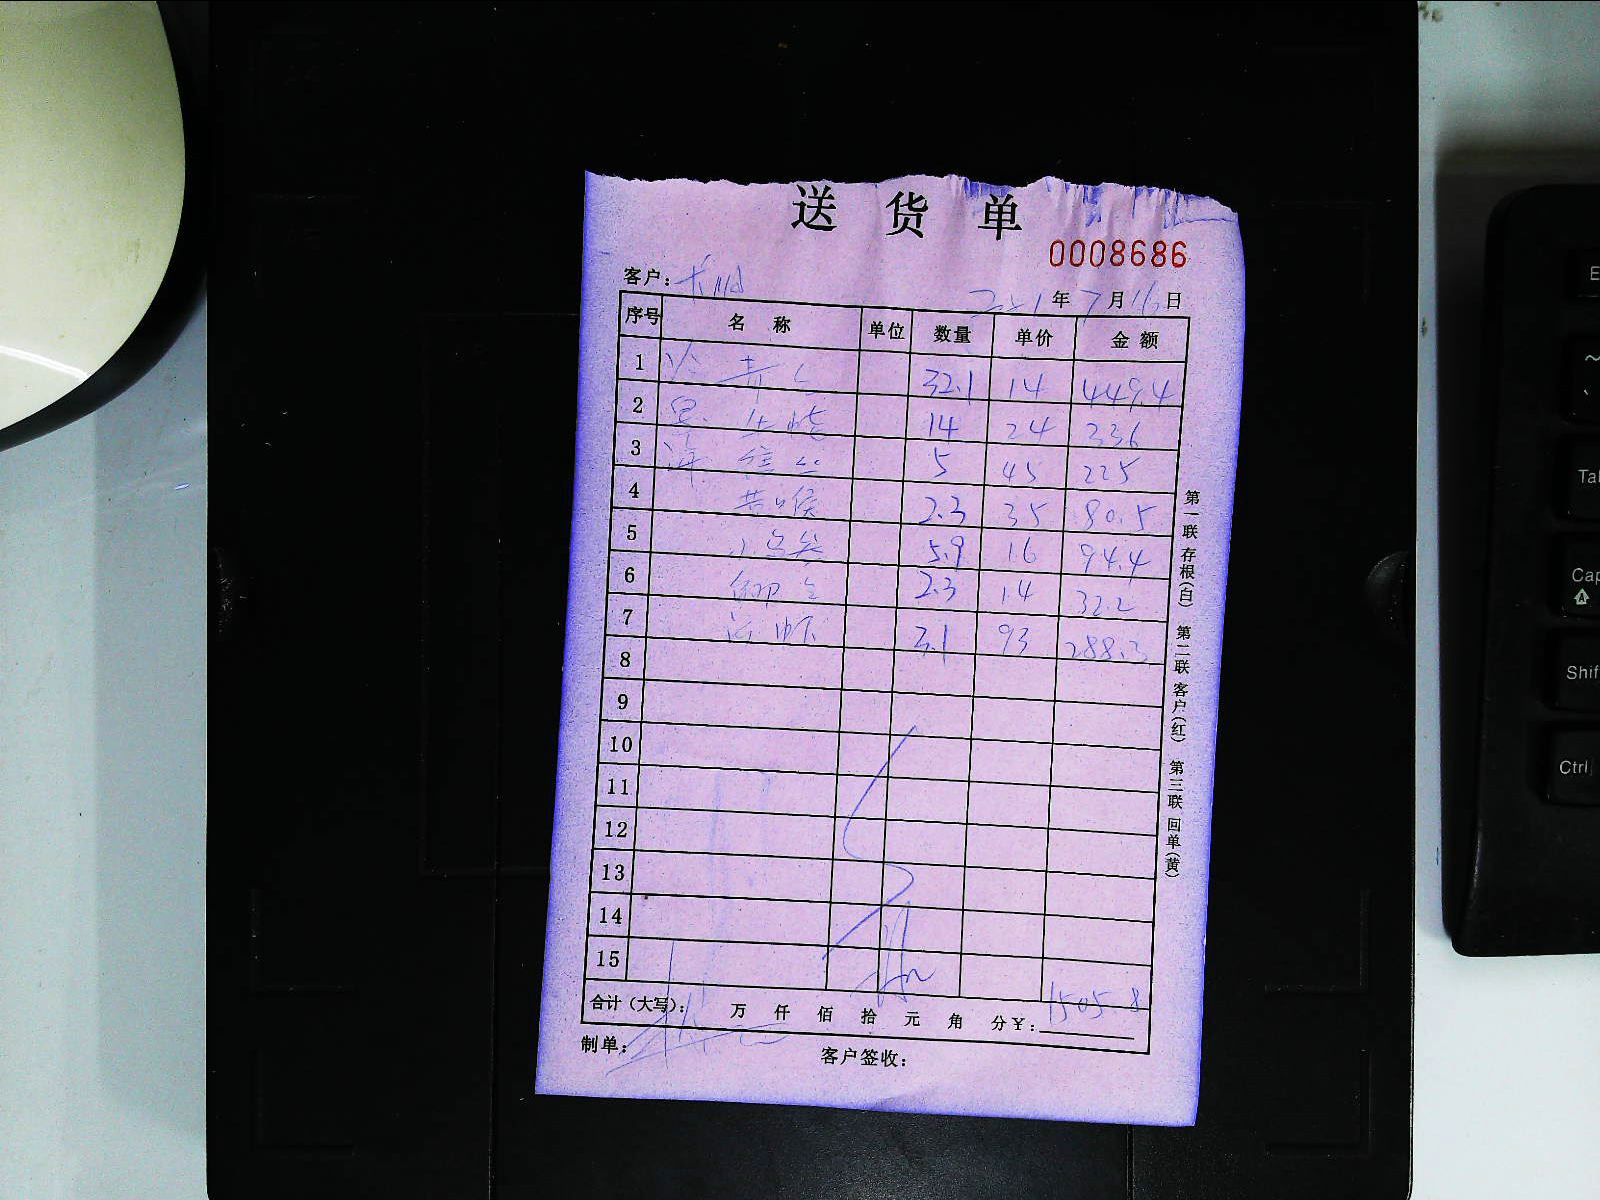 送货单
0008686
客户：
2021年7月16日
序号 名称 单位 数量 单价 金额
1 32.1 14 449.4
2 14 24 336
3 5 45 225
4 黄喉 2.3 35 80.5
5 5.9 16 94.4
6 2.3 14 32.2
7 3.1 93 288.3
8
9
10
11
12
13
14
15
合计（大写）： 万 仟 佰 拾 元 角 分￥：1505.8
制单： 客户签收：
第一联 存根（白） 第二联 客户（红） 第三联 回单（黄）
E
~
、
Tab
Cap
Shif
Ctrl